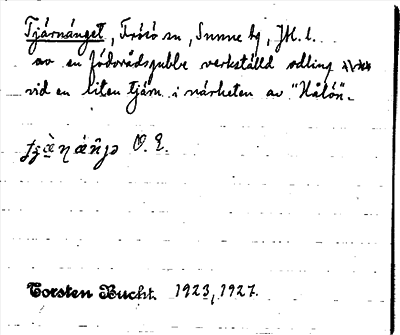 Tjärnänget, Frösö sn, Sunne tg, Jtl. l.
av en födorådsgubbe verkställd odling
vid en liten tjärn i närheten av "Hålön".
O. E.
Torsten Bucht. 1923, 1927.